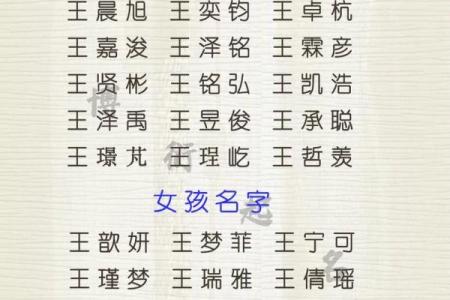 王晨旭 王奕钧 王卓杭
王嘉浚 王泽铭 王霖彦
王贤彬 王铭弘 王凯浩
王泽禹 王昱俊 王承聪
王璟芃 王珵屹 王哲羡
女孩名字
王歆妍 王梦菲 王宁可
王瑾梦 王瑞雅 王倩瑶
博衍起名